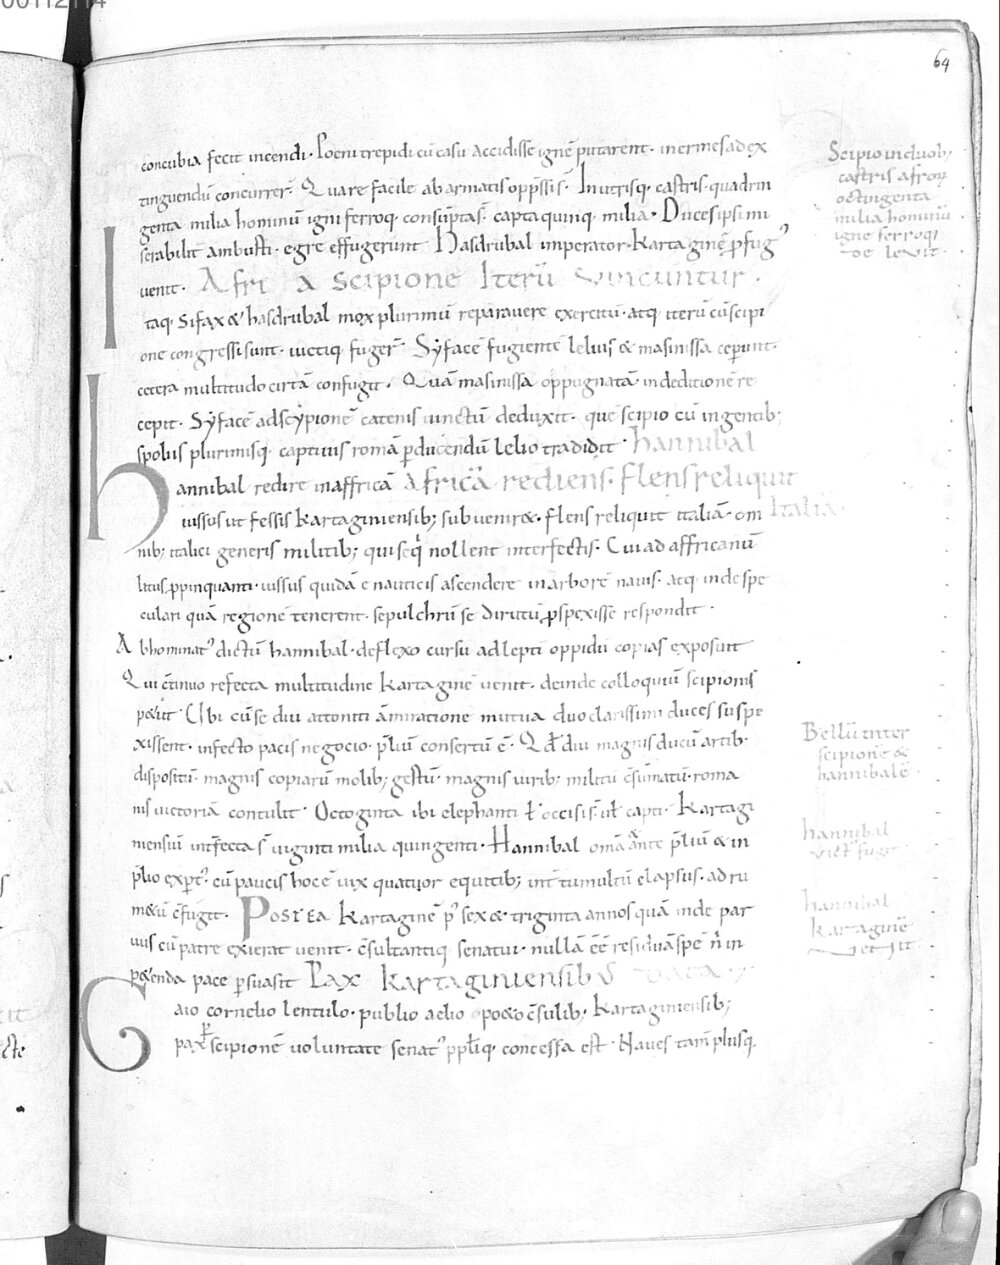 00112114
64
concubia fecit incendi· Poeni trepidi cū casu accidisse ignē putarent· inermes ad ex
tinguendū concurrer̄· Quare facile ab armatis opp̄ssi s̄· In utrisq· castris· quadrin
genta milia hominū igni ferroq· consūpta s̄· capta quinq· milia· Duces ipsi mi
serabilit̄ ambusti· egre effugerunt Hasdrubal imperator· Kartaginē ꝓfugꝰ
uenit· Afri a Scipione Iterū Vincuntur·
Itaq· Sifax & hasdrubal mox plurimū reparauere exercitū· atq· iterū cū scipi
one congressi sunt· uictiq· fuger̄· Syface fugiente leliuś & masinissa ceperunt·
cetera multitudo cirtā confugit· Quā masinissa oppugnatā in deditionē re
cepit· Syface ad scypionē catenis uinctū deduxit· quē scipio cū ingentib;
spoliis plurimisq· captiuis romā ꝑducendū lelio tradidit· hannibal
hannibal redire in affricā Africā rediens· flens reliquit
iussus ut fessis Kartaginiensib; subuenir&· flens reliquit italiā· om Italiā·
nib; italici generis militib; qui seq̇ nollent interfectis· Cui ad affricanū
litus ꝓpinquanti· iussus quidā e nauticis ascendere in arborē nauis· atq· inde spe
culari quā regionē tenerent· sepulchrū se dirutū ꝓspexisse respondit·
Abhominatꝰ dictū hannibal· deflexo cursu ad lepti oppidū copias exposuit
Qui c̄tinuo refecta multitudine Kartaginē uenit· deinde colloquiū scipionis
p&iit· Ubi cū se diu attoniti ām̄iratione mutua duo clarissimi duces suspe
xissent· infecto pacis negocio· p̄liū consertū ē· Qđ diu magnis ducū artib·
dispositū· magnis copiarū molib; gestū· magnis uirib; militū c̄sūmatū· roma
nis uictoriā contulit· Octoginta ibi elephanti ł occisi s̄· uł capti· Kartagi
niensiū int̄fecta s̄ uiginti milia quingenti· Hannibal om̄a & ante p̄liū & in
p̄lio exꝑtꝰ· cū paucis hoc ē uix quatuor equitib; int̄ tumultū elapsus· adru
m&ū c̄fugit· Postea Kartaginē pꝰ sex & triginta annos quā inde par
uus cū patre exierat uenit· c̄sultantiq· senatui· nullā ēē residuā spē n̄ in
p&enda pace ꝑsuasit Pax Kartaginiensibus data
Gaio cornelio lentulo· publio aelio ppo&o c̄sulib; Kartaginiensib;
pax ꝑ scipionē uoluntate senatꝰ pp̄liq· concessa est· Naues tam̄ plusq·
Scipio in duob;
castris afrorꝫ
octingenta
milia hominū
igne ferroq·
deleuit·
Bellū inter
scipionē &
hannibalē·
hannibal
uictꝰ fugit
hannibal
kartaginē
uenit